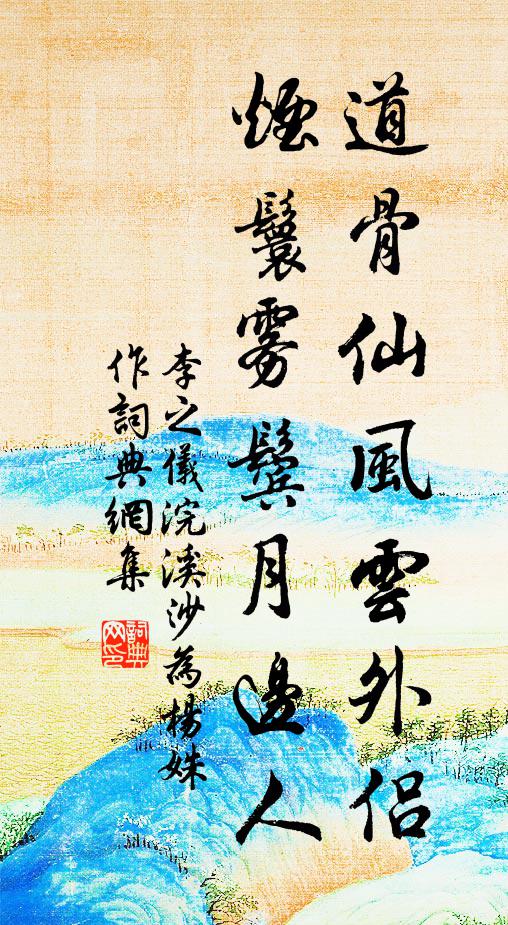 道骨仙風雲外侣
煙鬟雾鬢月邊人
李之儀浣溪沙為楊姝
作詞典網集
詞典网印